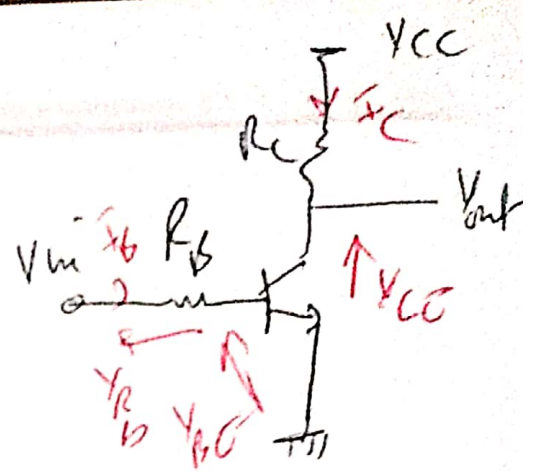 VCC
IC
RC
Vout
Vin IB RB
VCE
VRB
VBE